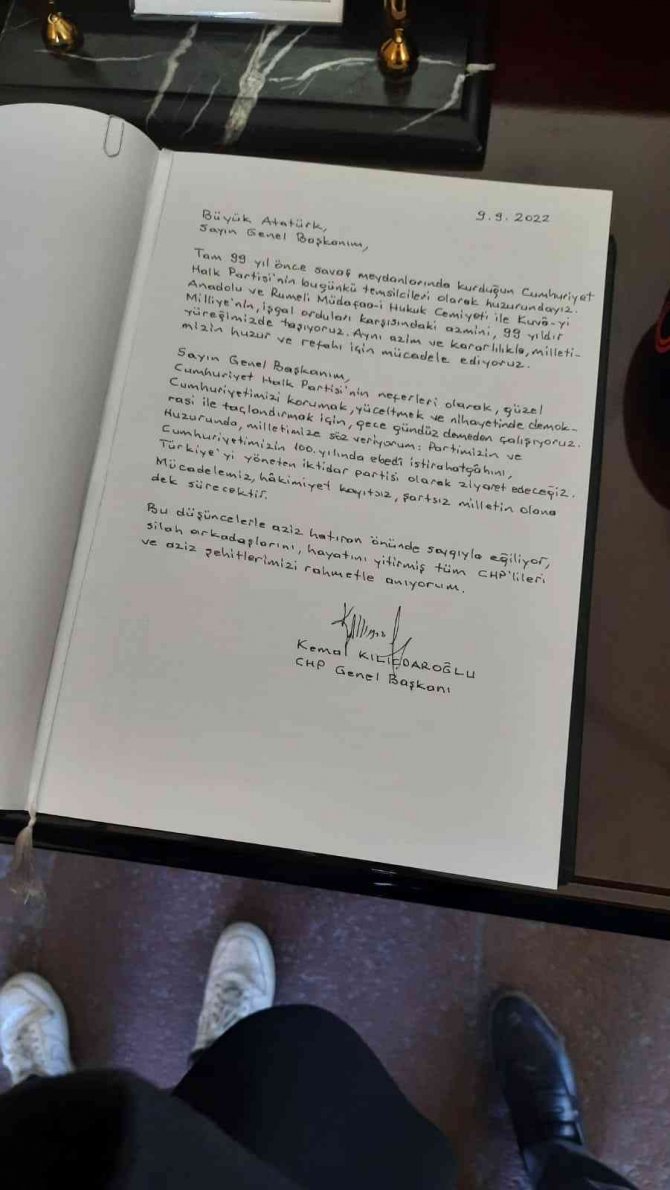 9.9.2022
Büyük Atatürk,
Sayın Genel Başkanım,
Tam 99 yıl önce savaş meydanlarında kurduğun Cumhuriyet
Halk Partisi'nin bugünkü temsilcileri olarak huzurundayız.
Anadolu ve Rumeli Müdafaa-i Hukuk Cemiyeti ile Kuvâ-yi
Milliye'nin, işgal orduları karşısındaki azmini, 99 yıldır
yüreğimizde taşıyoruz. Aynı azim ve kararlılıkla, milleti-
mizin huzur ve refahı için mücadele ediyoruz.
Sayın Genel Başkanım,
Cumhuriyet Halk Partisi'nin neferleri olarak, güzel
Cumhuriyetimizi korumak, yüceltmek ve nihayetinde demok-
rasi ile taçlandırmak için, gece gündüz demeden çalışıyoruz.
Huzurunda, milletimize söz veriyorum: Partimizin ve
Cumhuriyetimizin 100. yılında ebedî istirahatgâhını,
Türkiye'yi yöneten iktidar partisi olarak ziyaret edeceğiz.
Mücadelemiz, hâkimiyet kayıtsız, şartsız milletin olana
dek sürecektir.
Bu düşüncelerle aziz hatıran önünde saygıyla eğiliyor,
silah arkadaşlarını, hayatını yitirmiş tüm CHP'lileri
ve aziz şehitlerimizi rahmetle anıyorum.
Kemal KILIÇDAROĞLU
CHP Genel Başkanı